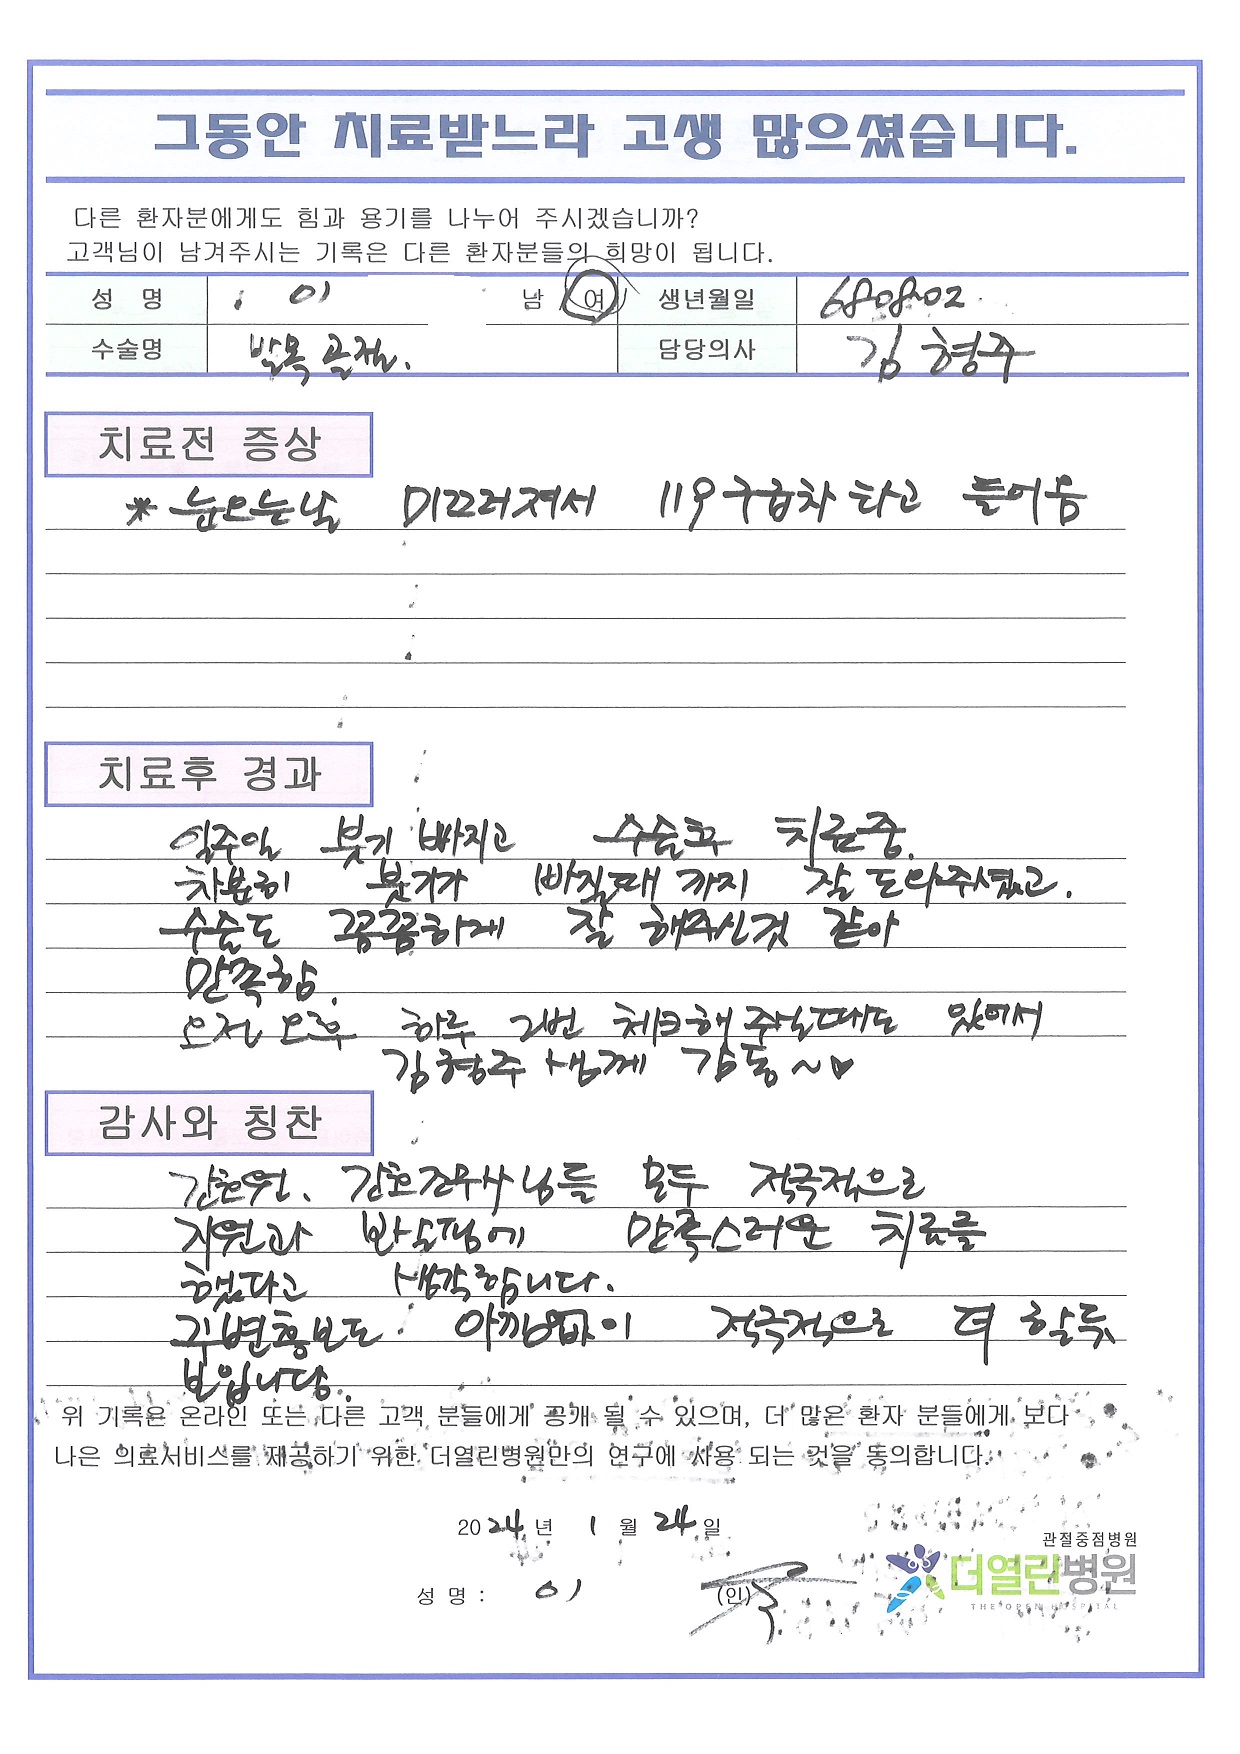 그동안 치료받느라 고생 많으셨습니다.
다른 환자분에게도 힘과 용기를 나누어 주시겠습니까?
고객님이 남겨주시는 기록은 다른 환자분들의 희망이 됩니다.
성 명 이 남 / 여 생년월일 680802
수술명 발목 골절. 담당의사 김형주
치료전 증상
* 눈오는날 미끄러져서 119구급차 타고 들어옴
치료후 경과
일주일 붓기 빠지고 수술후 치료중.
차분히 붓기가 빠질때 까지 잘 도와주셨고.
수술도 꼼꼼하게 잘 해주신것 같아
만족함.
오전 오후 하루 2번 체크해 주실때도 있어서
김형주 샘께 감동~♥
감사와 칭찬
간호원. 간호조무사님들 모두 적극적으로
지원과 만족스러운 치료를
했다고 생각합니다.
주변홍보도 아낌없이 적극적으로 더 할듯
보입니다.
위 기록은 온라인 또는 다른 고객 분들에게 공개 될 수 있으며, 더 많은 환자 분들에게 보다
나은 의료서비스를 제공하기 위한 더열린병원만의 연구에 사용 되는 것을 동의합니다.
2024년 1월 24일
관절중점병원
더열린병원
THE OPEN HOSPITAL
성 명 : 이 (인)